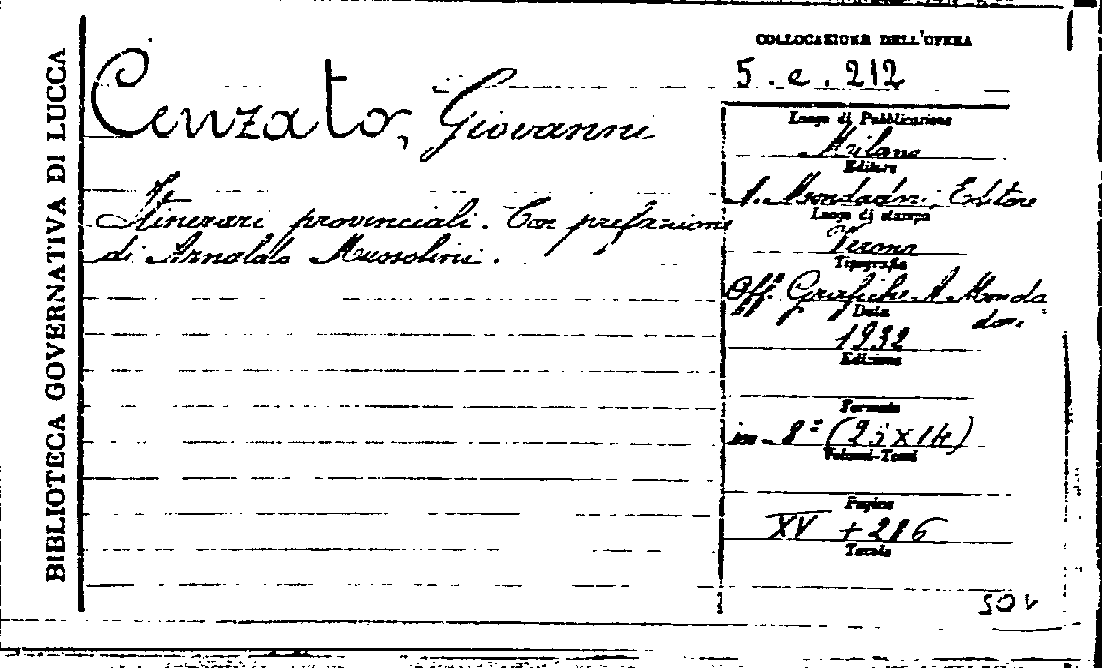 BIBLIOTECA GOVERNATIVA DI LUCCA
COLLOCAZIONE DELL'OPERA
5. e. 212
Cenzato, Giovanni
Itinerari provinciali. Con prefazione
di Arnaldo Mussolini.
Luogo di Pubblicazione
Milano
Editore
A. Mondadori, Editore
Luogo di stampa
Verona
Tipografia
Off. Grafiche A. Monda
dori
Data
1932
Edizione
Formato
in-8° (25x14)
Volumi-Tomi
Pagine
XV + 216
Tavole